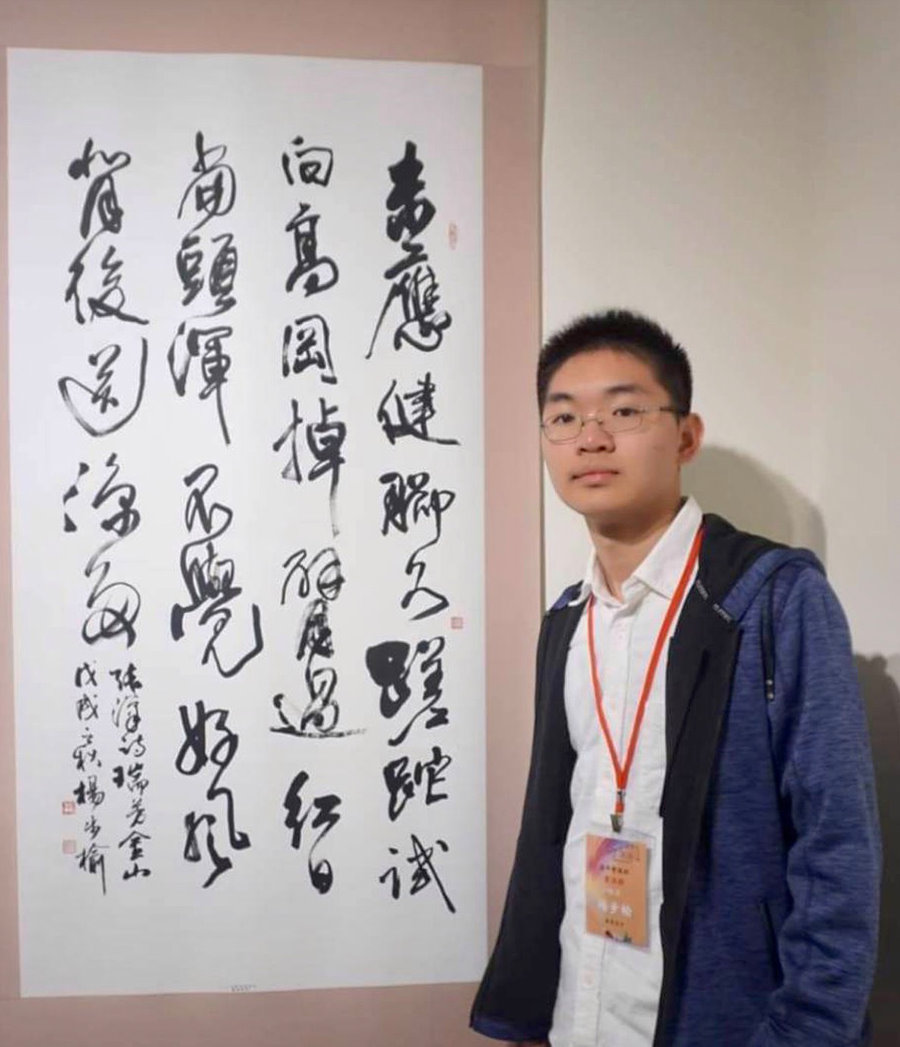 未應健腳久蹉跎試
向高岡掉臂過紅日
當頭渾不覺好風
背後送涼多
詩瑞芳金山
戊戌秋楊步榆